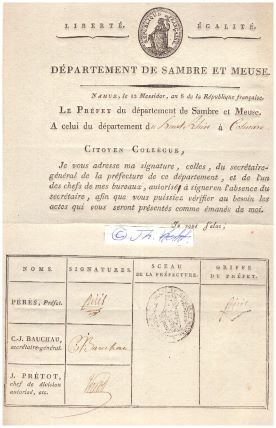 LIBERTÉ, ÉGALITÉ.
DÉPARTEMENT DE SAMBRE ET MEUSE.
NAMUR, le 12 Messidor, an 8 de la République française.
LE PRÉFET du département de Sambre et Meuse,
A celui du département de à
CITOYEN COLLÈGUE,
Je vous adresse ma signature, celles, du secrétaire-
général de la préfecture de ce département, et de l'un
des chefs de mes bureaux, autorisé à signer en l'absence du
secrétaire, afin que vous puissiez vérifier au besoin les
actes qui vous seront présentés comme émanés de moi.
Je vous salue;
NOMS. SIGNATURES. SCEAU DE LA PRÉFECTURE. GRIFFE DU PRÉFET.
PÉRÈS, Préfet. Pérès Pérès
C.-J. BAUCHAU, secrétaire-général. Bauchau
J. PRÉTOT, chef de division autorisé, etc. Prétot